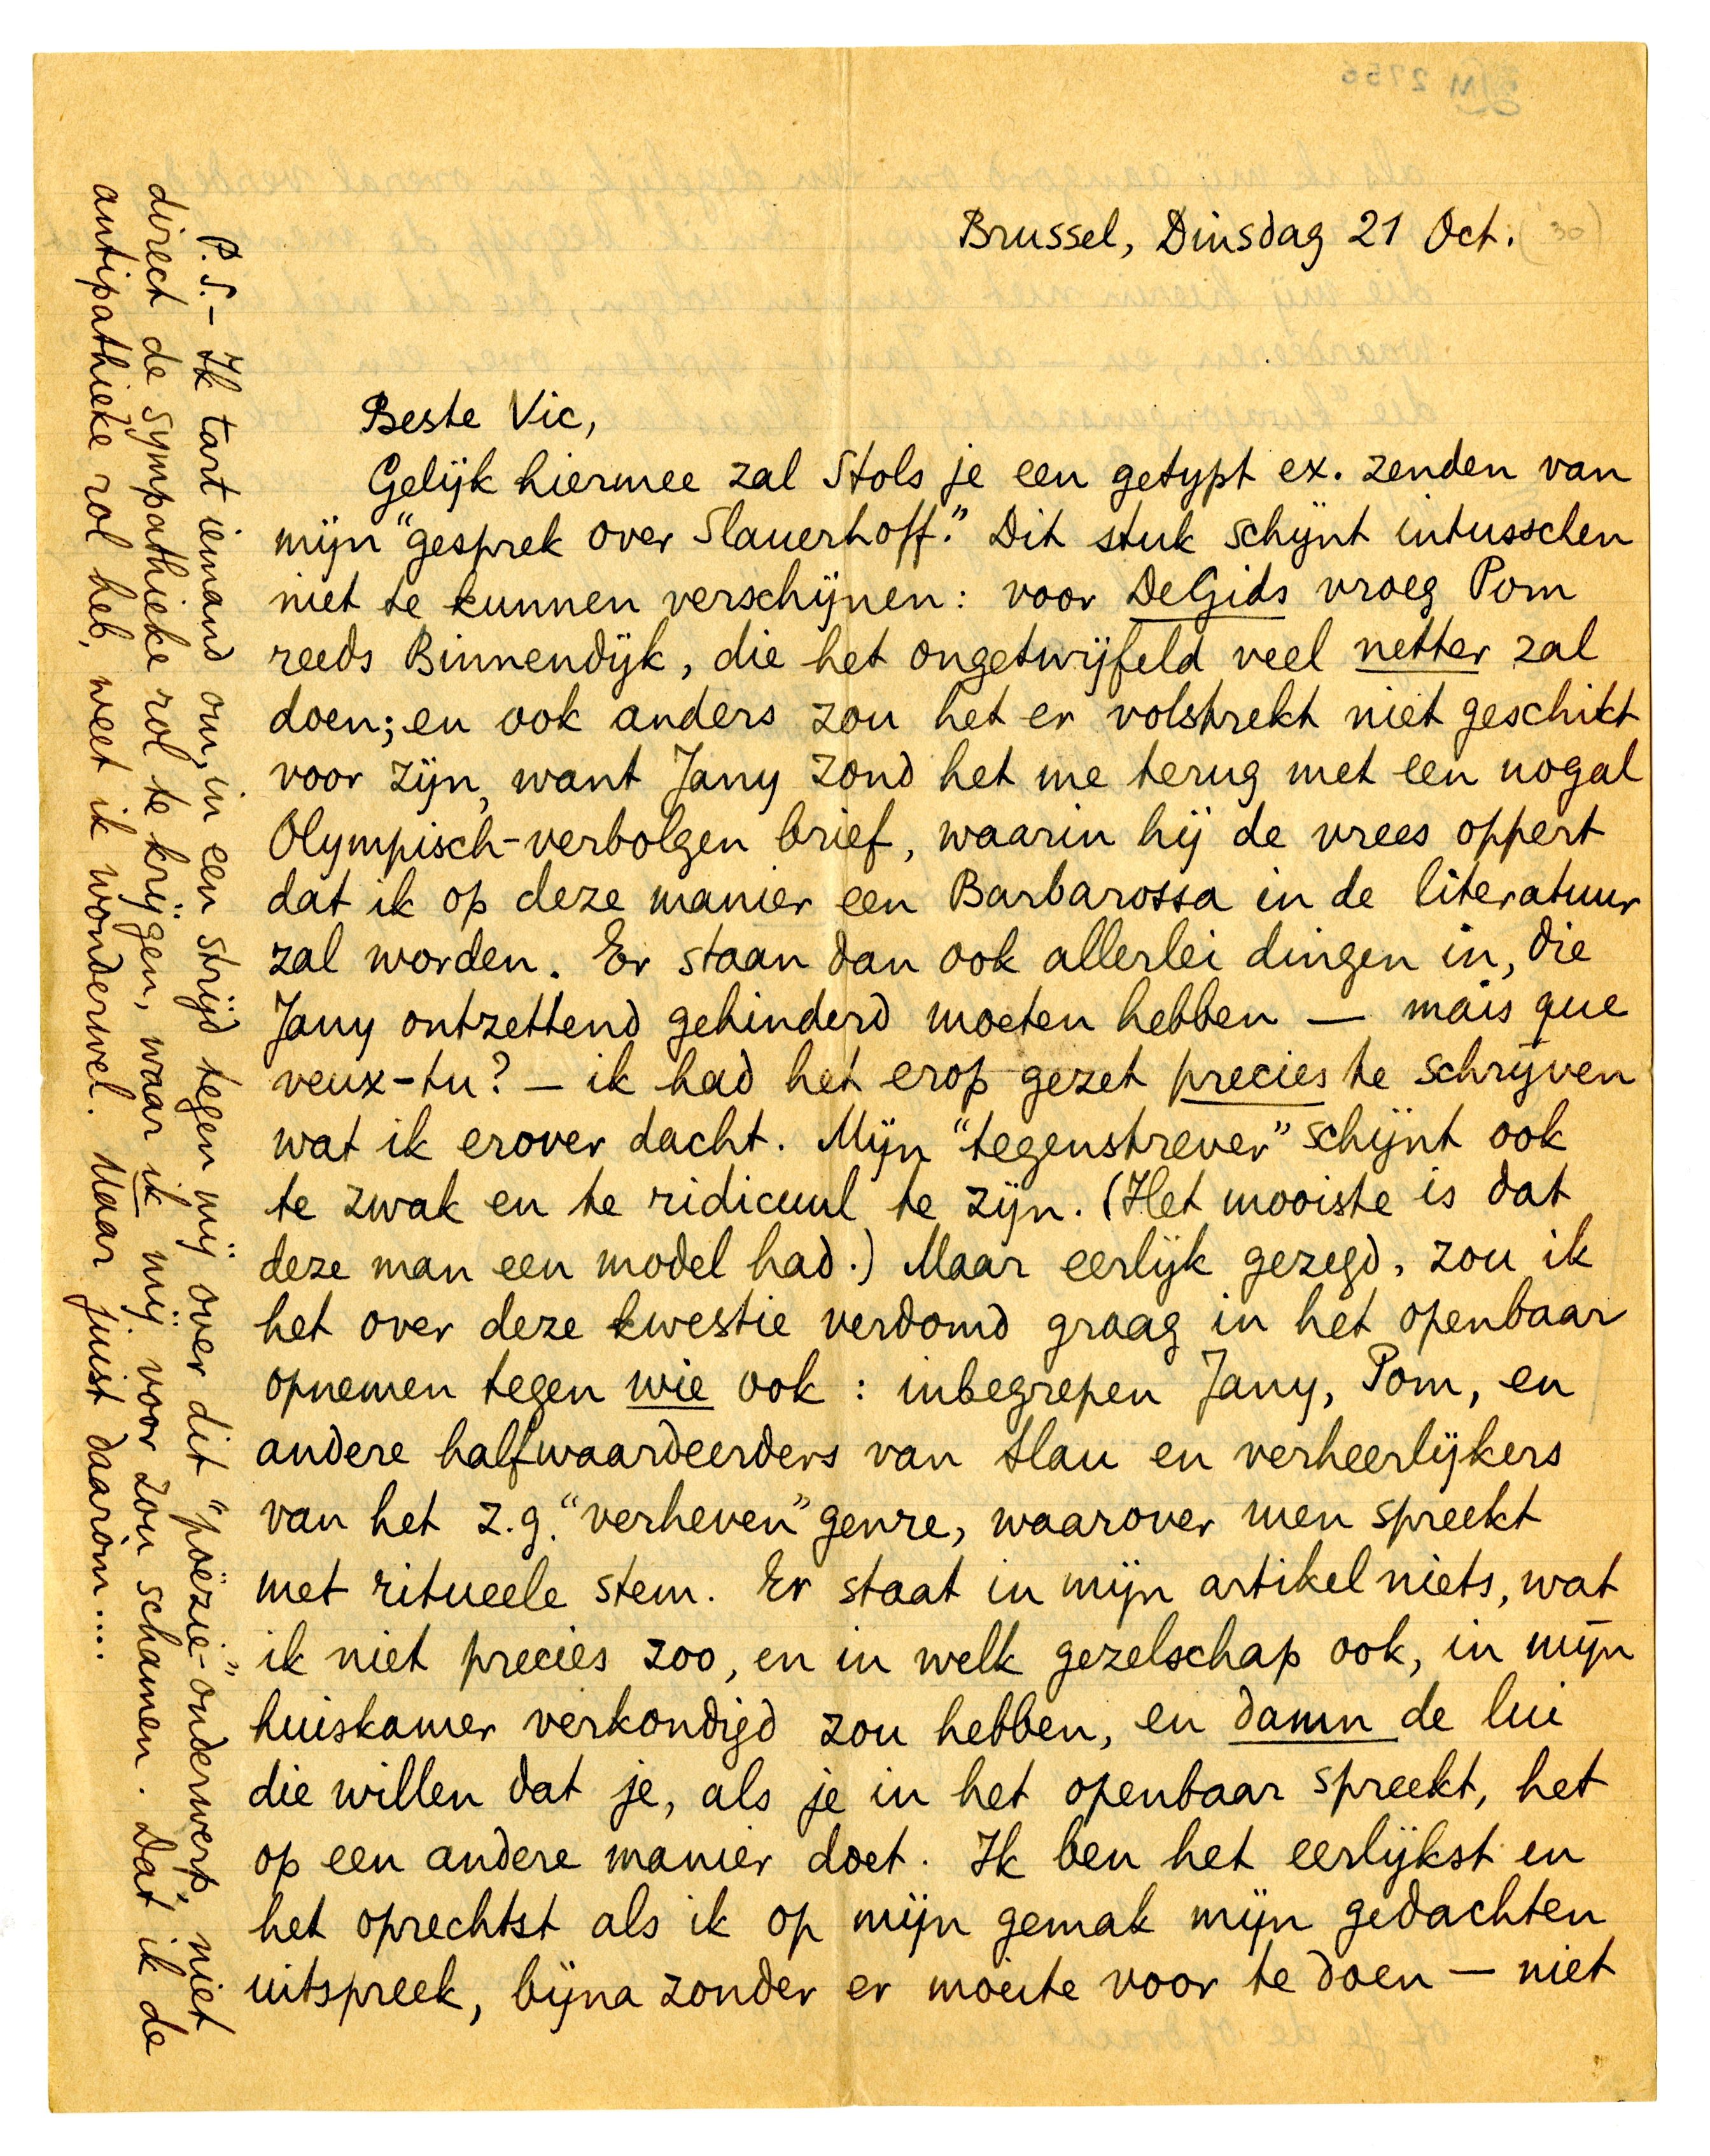 Brussel, Dinsdag 21 Oct. ('30)
Beste Vic,
Gelijk hiermee zal Stols je een getypt ex. zenden van
mijn "gesprek over Slauerhoff." Dit stuk schijnt intusschen
niet te kunnen verschijnen: voor De Gids vroeg Pom
reeds Binnendijk, die het ongetwijfeld veel netter zal
doen; en ook anders zou het er volstrekt niet geschikt
voor zijn, want Jany zond het me terug met een nogal
Olympisch-verbolgen brief, waarin hij de vrees oppert
dat ik op deze manier een Barbarossa in de literatuur
zal worden. Er staan dan ook allerlei dingen in, die
Jany ontzettend gehinderd moeten hebben — mais que
veux-tu? — ik had het erop gezet precies te schrijven
wat ik erover dacht. Mijn "tegenstrever" schijnt ook
te zwak en te ridicuul te zijn. (Het mooiste is dat
deze man een model had.) Maar eerlijk gezegd, zou ik
het over deze kwestie verdomd graag in het openbaar
opnemen tegen wie ook: inbegrepen Jany, Pom, en
andere halfwaardeerders van Slau en verheerlijkers
van het z.g. "verheven" genre, waarover men spreekt
met ritueele stem. Er staat in mijn artikel niets, wat
ik niet precies zoo, en in welk gezelschap ook, in mijn
huiskamer verkondigd zou hebben, en damn de lui
die willen dat je, als je in het openbaar spreekt, het
op een andere manier doet. Ik ben het eerlijkst en
het oprechtst als ik op mijn gemak mijn gedachten
uitspreek, bijna zonder er moeite voor te doen — niet
P.S. — Ik tart iemand om, in een strijd tegen mij over dit "poëzie"-onderwerp, niet
direct de sympathieke rol te krijgen, waar ik mij voor zou schamen. Dat ik de
antipathieke rol heb, weet ik wonderwel. Maar juist daarom....
2756